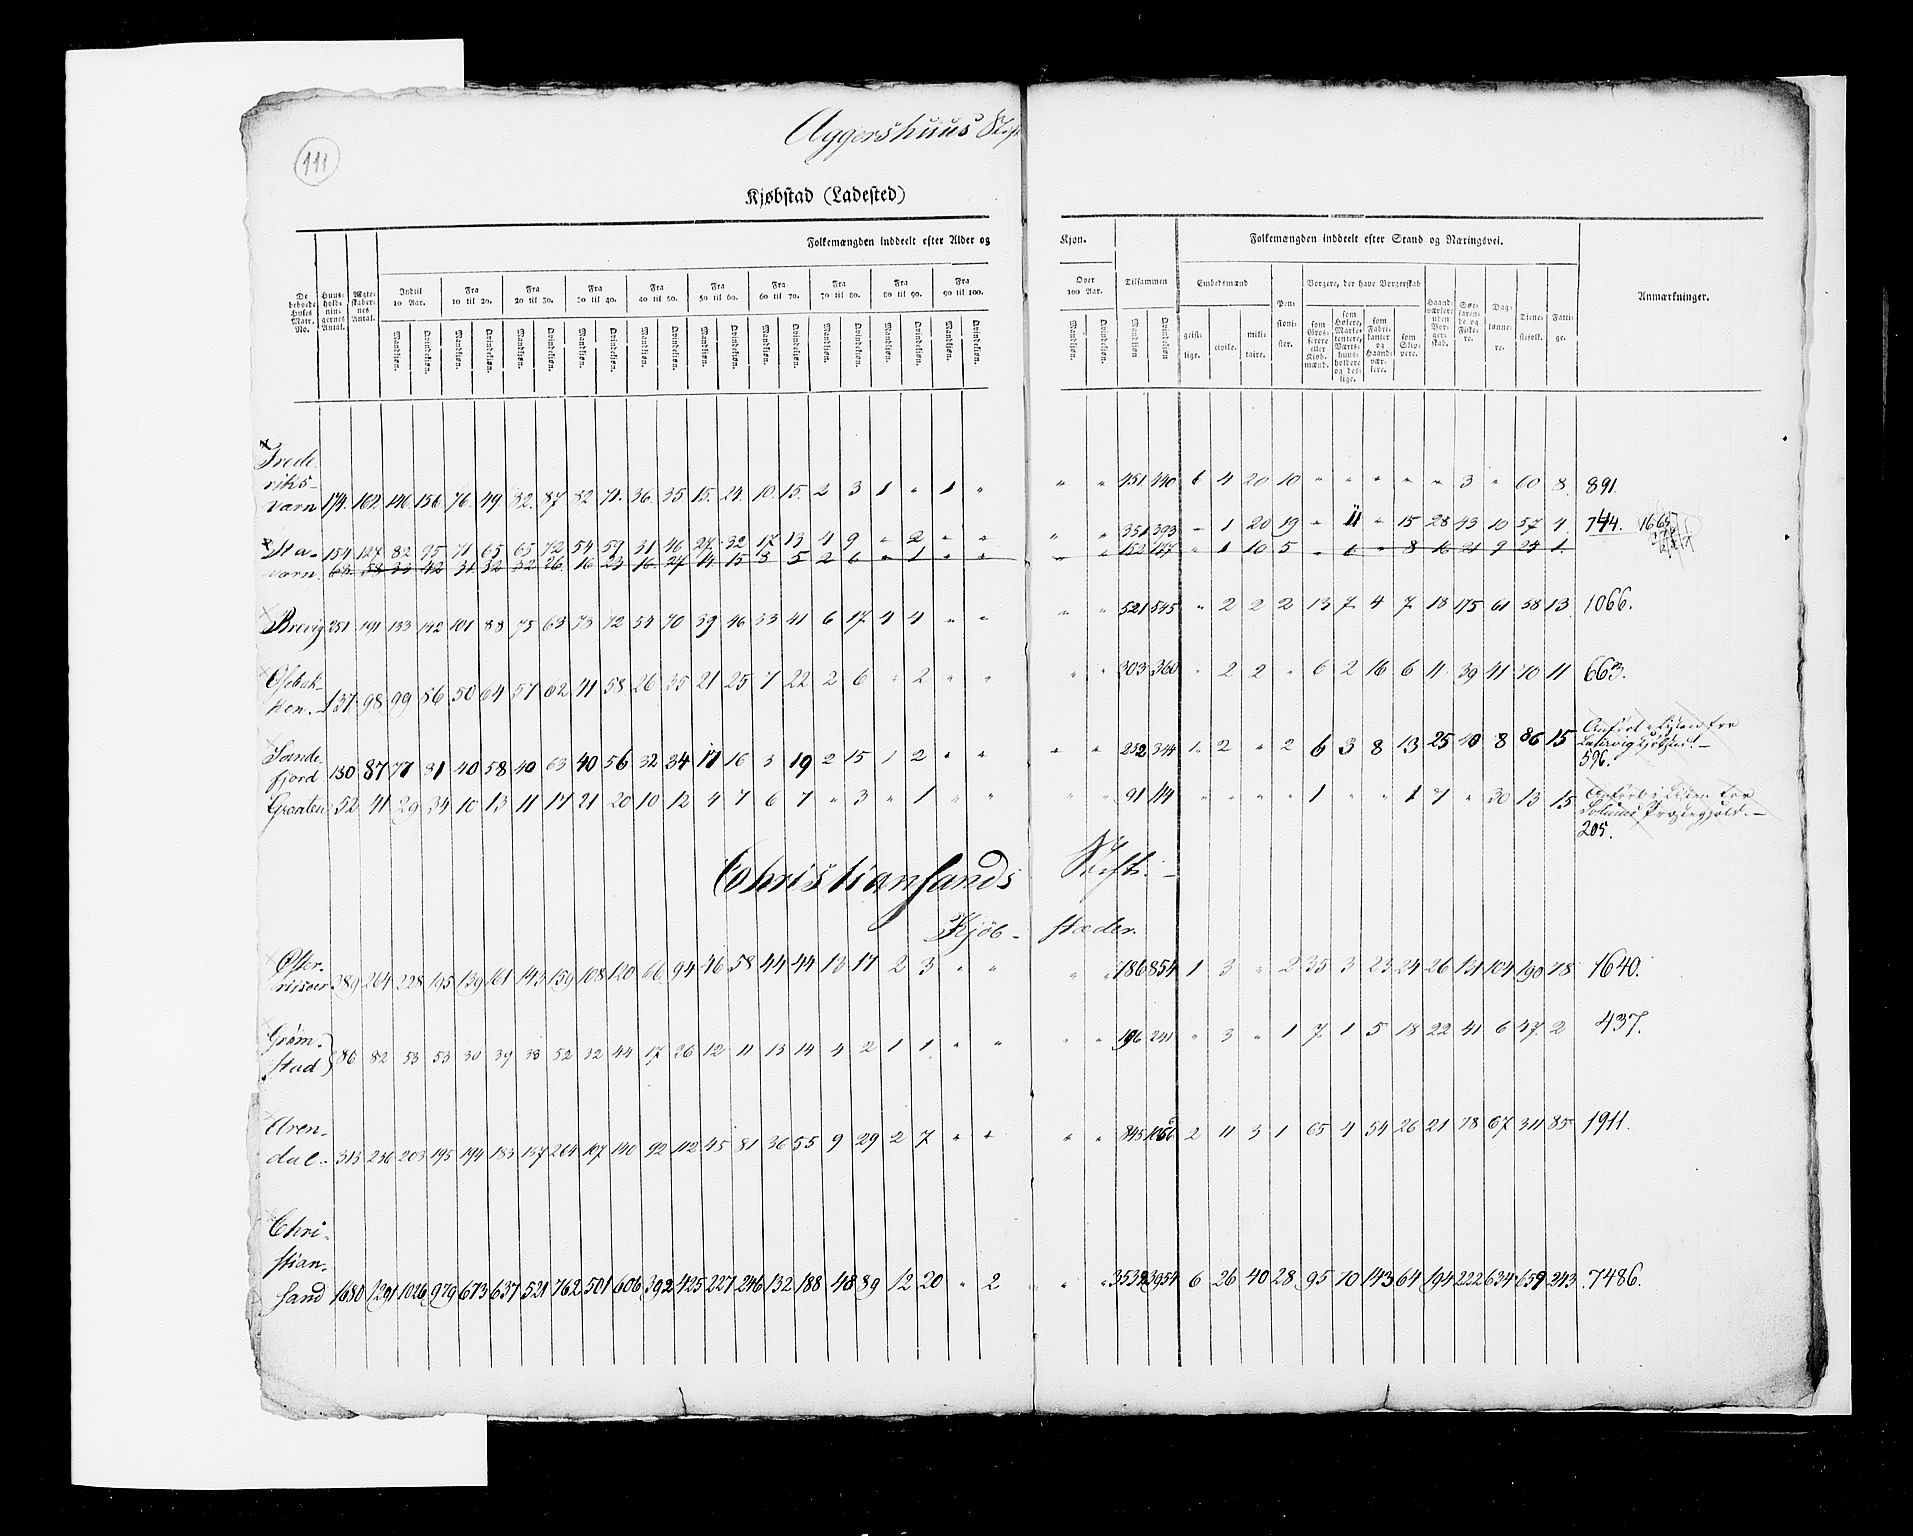 111
Aggershuus Stift
Kjøbstad (Ladested)
Folkemængden inddeelt efter Alder og Kjøn. Folkemængden inddeelt efter Stand og Næringsvei.
De beboede Huses Matr. No. Huusholdningernes Antal. Ægteskabernes Antal. Indtil 10 Aar. Fra 10 til 20. Fra 20 til 30. Fra 30 til 40. Fra 40 til 50. Fra 50 til 60. Fra 60 til 70. Fra 70 til 80. Fra 80 til 90. Fra 90 til 100. Over 100 Aar. Tilsammen Embedsmænd Pensionister. Borgere, der have Borgerskab Haandværkere uden Borgerskab. Søefarende og Fiskere. Daglønnere. Tienestefolk. Fattige. Anmærkninger.
Mandkjøn. Qvindekjøn. Mandkjøn. Qvindekjøn. Mandkjøn. Qvindekjøn. Mandkjøn. Qvindekjøn. Mandkjøn. Qvindekjøn. Mandkjøn. Qvindekjøn. Mandkjøn. Qvindekjøn. Mandkjøn. Qvindekjøn. Mandkjøn. Qvindekjøn. Mandkjøn. Qvindekjøn. Mandkjøn. Qvindekjøn. Mandkjøn Qvindekjøn geistlige. civile. militaire. som Grosserere eller Kjøbmænd. som Høkere, Marketentere, Værtshuusholdere og deslige. som Fabrikanter og Haandværkere. som Skippere.
Frede
riks-
værn 174. 162. 146. 156 76. 49. 82. 87 82 71. 36. 35. 15. 24. 10. 15. 2 3 1 " 1 " " " 451 440 6 4 20 10 " " " " " 3 " 60 8. 891.
Sta- 154 127 82 95 71 65 65 72 54 59 31 46 27 32 17 13 4 9 " 2 " " " " 351 393 " 1 20 19 " 11 " 15 28 43 10 57 4 744. 1665
værn. 68. 58 33 42 31 32 32 26. 16 23 16. 27 14 15 8 5 2 6 " 1 " " " "
Brevig 251 191 133 142 101 88 75 63 73 72 54 70 39 46 33 41 6 17 4 4 " " " " 521 545 " 2 2 2 13 7 4 7 18 175 61 58 13 1066.
137 98 99 86 50 64 57 62 41 58 26 35 21 25 7 22 2 6 " 2 " " " " 303 360 " 2 2 " 6 2 16 6 11 39 41 70 11 663.
Sande
fjord 130 87 77 81 40 58 40 63 40 56 32 34 17 16 3 19 2 15 1 2 " " " " 252 344 1 2 " 2 6 3 8 13 25 40 8 86 15
Anført i Listen for
Laurvig Kjøbsted. -
596.
Græaten 52 41 29 34 10 13 11 17 21 20 10 12 4 7 6 7 " 3 " 1 " " " " 91 114 " " " " 1 " " 1 7 " 30 13 15
Anført i Listen for
Solums Præstegjæld. -
205.
Christiansands Stift. -
Kjøb - stæder.
Øster-
riisøer 289 264 228 195 139 161 143 159 108 120 66 94 46 58 44 44 10 17 2 3 " " " " 786 854 1 3 " 2 35 3 23 24 26 131 104 190 78 1640.
Grøm-
stad 86 82 53 53 30 39 38 52 32 44 17 26 12 11 13 14 4 2 1 1 " " " " 196 241 " 3 " 1 7 1 5 18 22 41 6 47 2 437.
Aren-
dal. 313 236 203 195 194 183 157 264 107 140 92 112 45 81 36 55 9 29 2 7 " " " " 845 1066 2 11 3 1 65 4 54 26 21 78 67 311 85 1911.
Chri-
stian-
sand 1680 1291 1026 979 673 637 521 762 501 606 392 425 227 246 132 188 48 89 12 20 " 2 " " 3532 3954 6 26 40 28 95 10 143 64 194 222 634 659 243 7486.